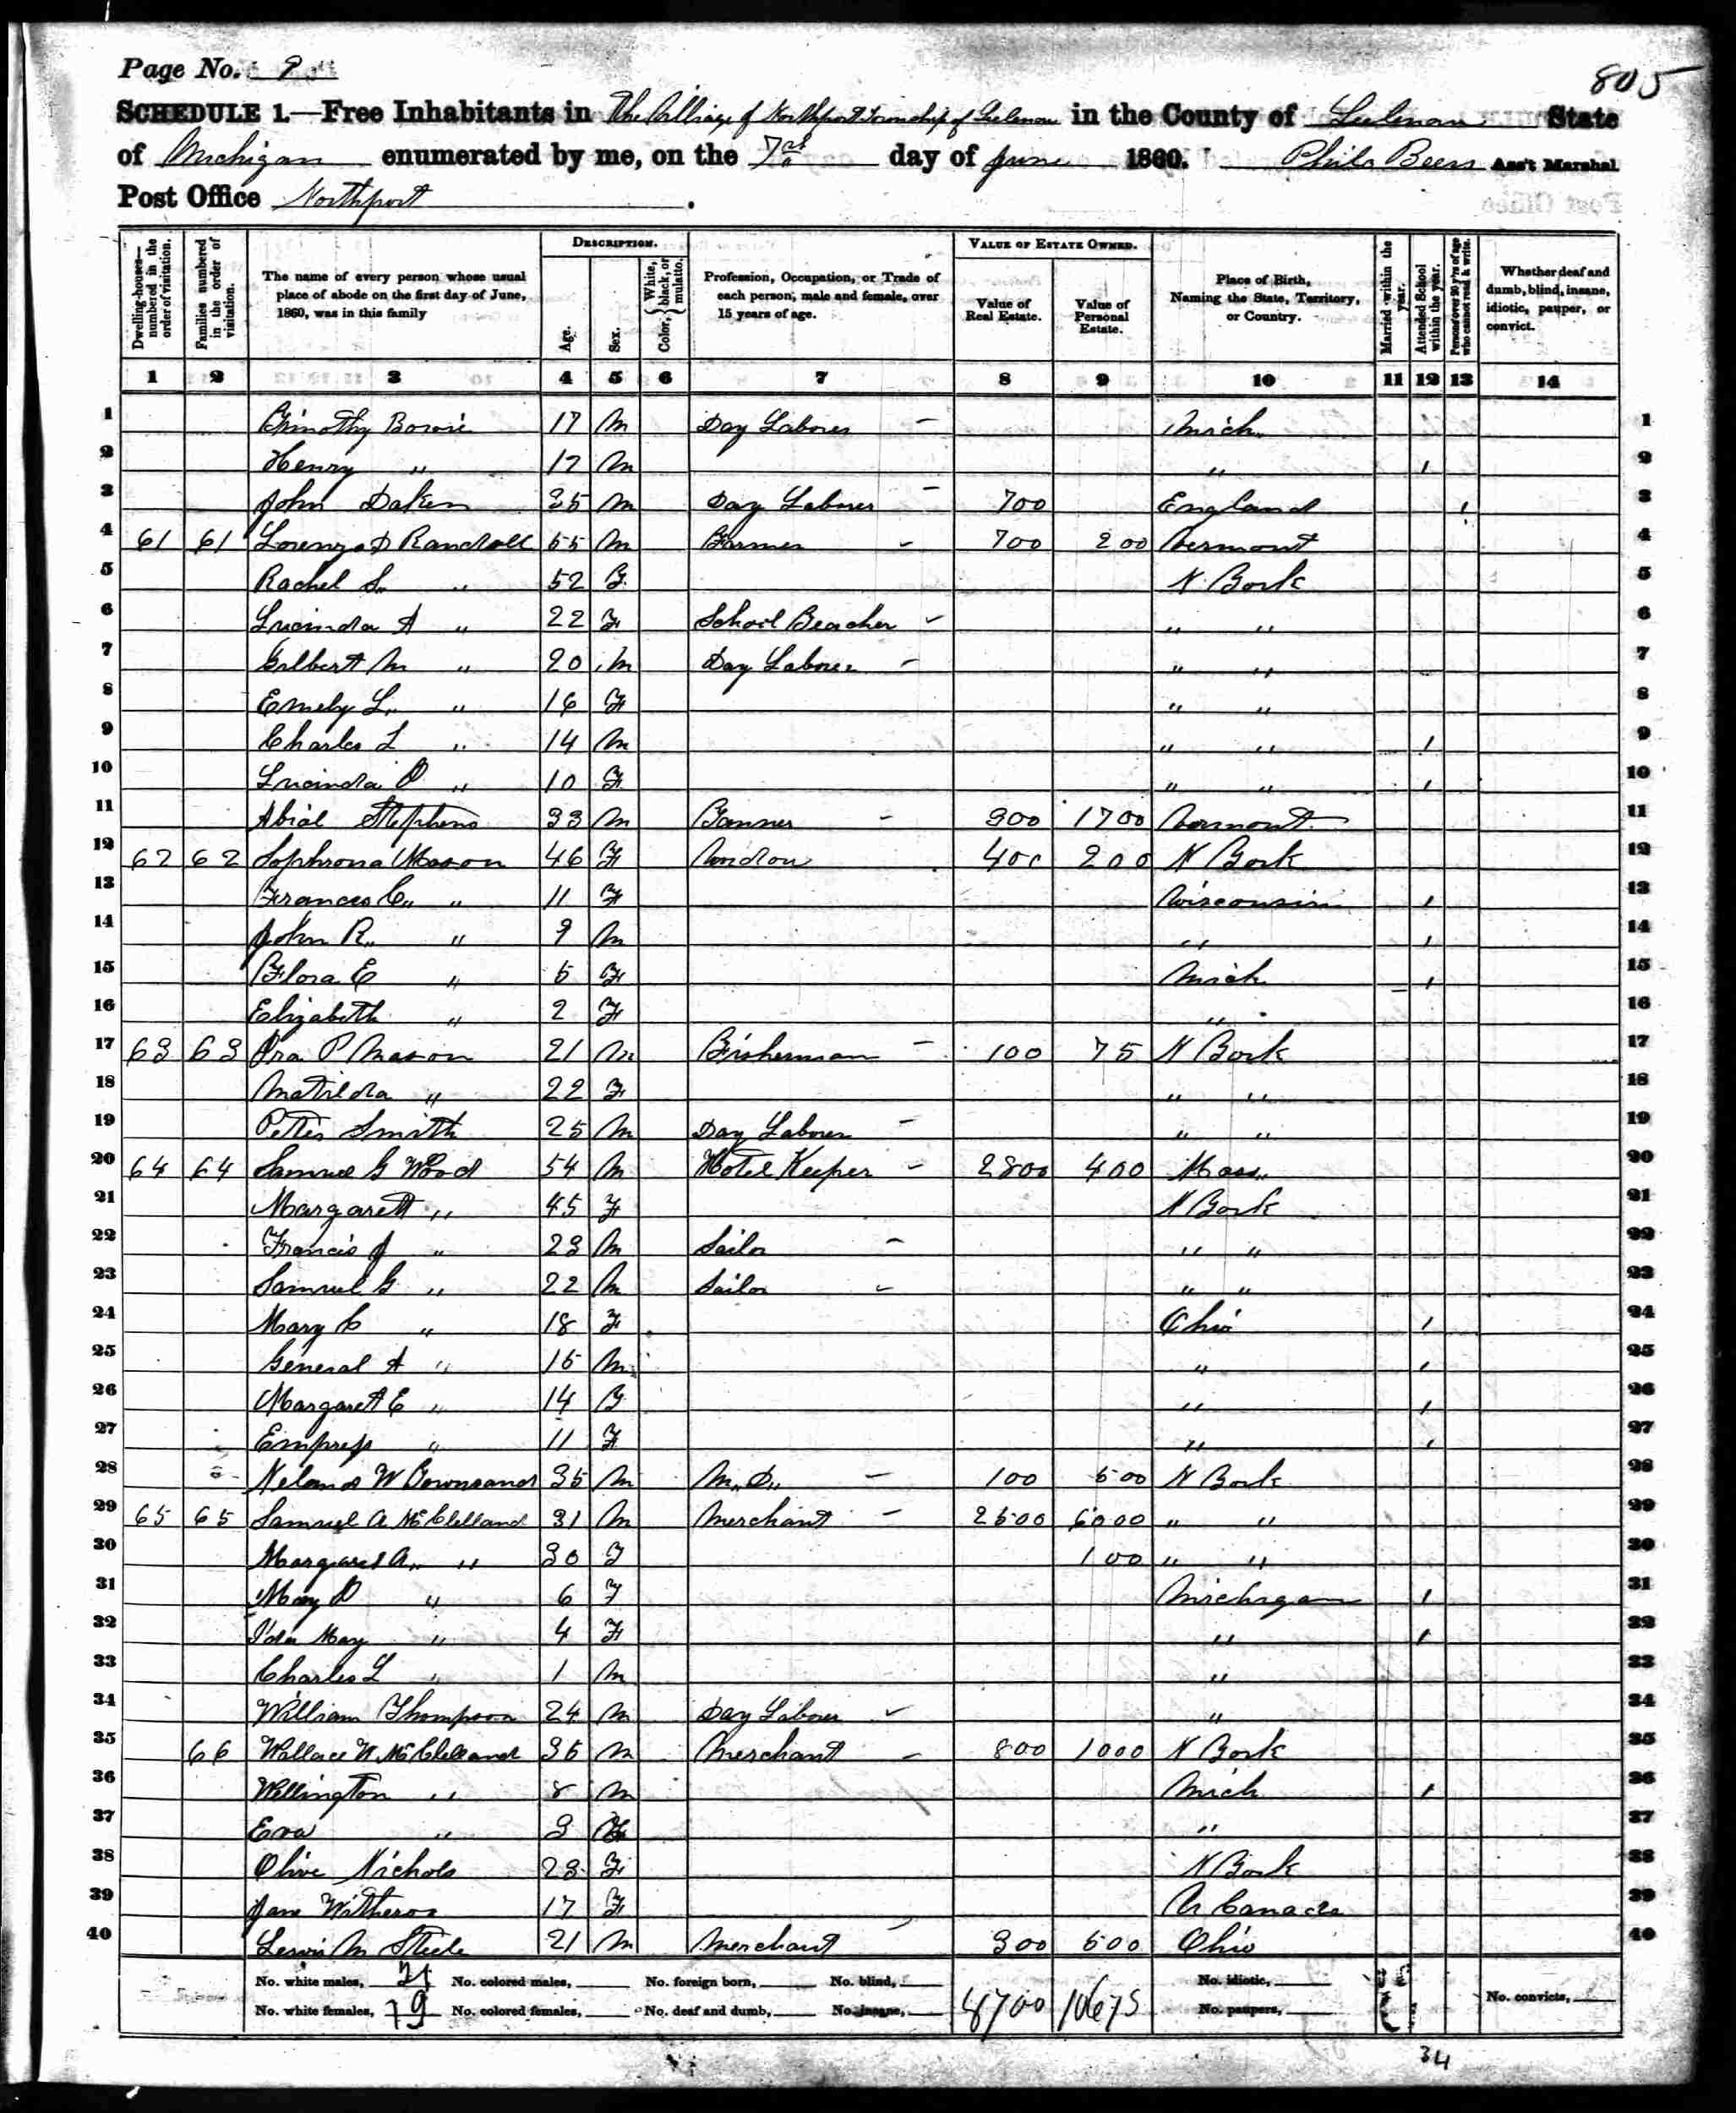 Page No. 9
805
SCHEDULE 1.—Free Inhabitants in The Village of Northport Township of Leelenau in the County of Leelenau State
of Michigan enumerated by me, on the 7th day of June 1860. Philo Beers Ass't Marshal
Post Office Northport
Dwelling-houses—numbered in the order of visitation.
Families numbered in the order of visitation.
The name of every person whose usual place of abode on the first day of June, 1860, was in this family
DESCRIPTION.
Age.
Sex.
Color, White, black, or mulatto.
Profession, Occupation, or Trade of each person, male and female, over 15 years of age.
VALUE OF ESTATE OWNED.
Value of Real Estate.
Value of Personal Estate.
Place of Birth, Naming the State, Territory, or Country.
Married within the year.
Attended School within the year.
Persons over 20 y'rs of age who cannot read & write.
Whether deaf and dumb, blind, insane, idiotic, pauper, or convict.
1 2 3 4 5 6 7 8 9 10 11 12 13 14
1 Timothy 17 M Day Laborer Mich. 1
2 Henry " 17 M " 1 2
3 John Daken 35 M Day Laborer 700 England 1 3
4 61 61 Lorenzo D Randall 55 M Farmer 700 200 Vermont 4
5 Rachel S. " 52 F N York 5
6 Lucinda A " 22 F School Teacher " " 6
7 Gilbert M " 20 M Day Laborer " " 7
8 Emely L. " 16 F " " 8
9 Charles L " 14 M " " 1 9
10 Lucinda O " 10 F " " 1 10
11 Abial Stephens 33 M 300 1700 Vermont 11
12 62 62 Sophrona Mason 46 F 400 200 N York 12
13 Frances C. " 11 F Wisconsin 1 13
14 John R. " 9 M " 1 14
15 Flora E " 5 F Mich 1 15
16 Elizabeth " 2 F " 16
17 63 63 Ira P Mason 21 M Fisherman 100 75 N York 17
18 Matilda " 22 F " " 18
19 Smith 25 M Day Laborer " " 19
20 64 64 Samuel G Wood 54 M Hotel Keeper 2800 400 Mass. 20
21 Margarett " 45 F N York 21
22 Francis J " 23 M Sailor " " 22
23 Samuel G " 22 M Sailor " " 23
24 Mary C " 18 F Ohio 1 24
25 General A " 15 M " 1 25
26 Margaret E " 14 F " 1 26
27 Empress " 11 F " 1 27
28 W Townsand 35 M M.D. 100 500 N York 28
29 65 65 Samuel A McClelland 31 M Merchant 2500 6000 " " 29
30 Margaret A. " 30 F 100 " " 30
31 Mary O " 6 F Michigan 1 31
32 Ida May " 4 F " 1 32
33 Charles L " 1 M " 33
34 William Thompson 24 M Day Laborer " 34
35 66 Wallace W McClelland 35 M Merchant 800 1000 N York 35
36 Wellington " 8 M Mich 1 36
37 Eva " 3 F " 37
38 Olive Nichols 23 F N York 38
39 Jane 17 F Canada 39
40 Lewis M Steele 21 M Merchant 300 500 Ohio 40
No. white males, 21 No. colored males, No. foreign born, No. blind, No. idiotic,
No. white females, 19 No. colored females, No. deaf and dumb, No. insane, 8700 10675 No. paupers, No. convicts,
34